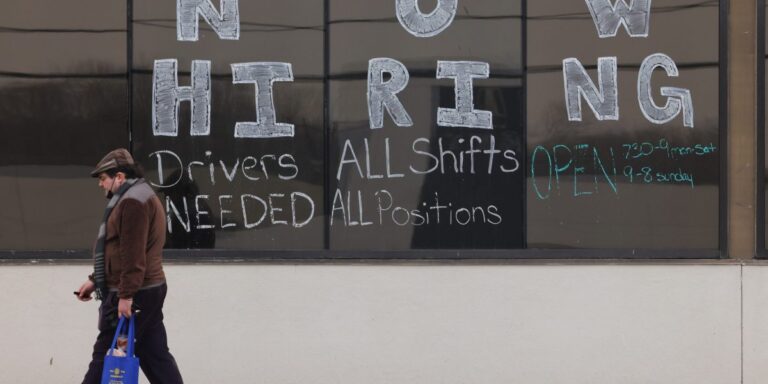 NOW
HIRING
Drivers ALL Shifts
NEEDED ALL Positions
OPEN 730-9 mon-sat
9-8 sunday